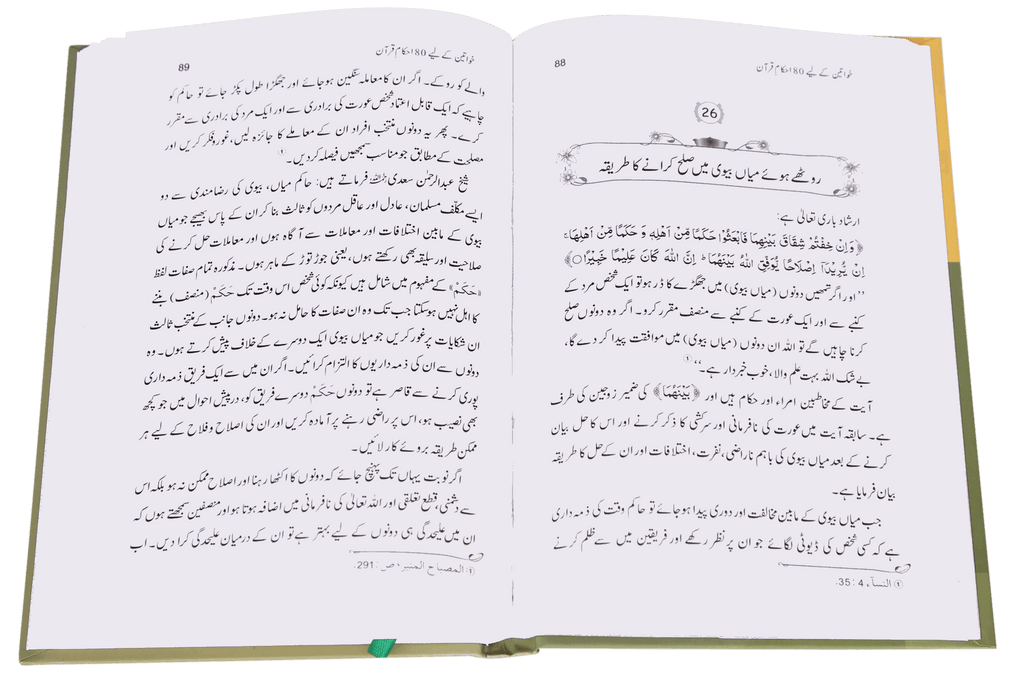 88
خواتین کے لیے 180 احکام قرآن
26
روٹھے ہوئے میاں بیوی میں صلح کرانے کا طریقہ
ارشاد باری تعالیٰ ہے:
﴿وَاِنْ خِفْتُمْ شِقَاقَ بَيْنِهِمَا فَابْعَثُوْا حَكَمًا مِّنْ اَهْلِهٖ وَ حَكَمًا مِّنْ اَهْلِهَا ۚ
اِنْ يُّرِيْدَاۤ اِصْلَاحًا يُّوَفِّقِ اللّٰهُ بَيْنَهُمَا ؕ اِنَّ اللّٰهَ كَانَ عَلِيْمًا خَبِيْرًا ۝﴾
’’اور اگر تمھیں دونوں (میاں بیوی) میں جھگڑے کا ڈر ہو تو ایک شخص مرد کے
کنبے سے اور ایک عورت کے کنبے سے منصف مقرر کرو۔ اگر وہ دونوں صلح
کرنا چاہیں گے تو اللہ ان دونوں (میاں بیوی) میں موافقت پیدا کر دے گا،
بے شک اللہ بہت علم والا، خوب خبردار ہے۔‘‘ ①
آیت کے مخاطبین امراء اور حکام ہیں اور ﴿بَيْنَهُمَا﴾ کی ضمیر زوجین کی طرف
ہے۔ سابقہ آیت میں عورت کی نافرمانی اور سرکشی کا ذکر کرنے اور اس کا حل بیان
کرنے کے بعد میاں بیوی کی باہم ناراضی، نفرت، اختلافات اور ان کے حل کا طریقہ
بیان فرمایا ہے۔
جب میاں بیوی کے مابین مخالفت اور دوری پیدا ہو جائے تو حاکم وقت کی ذمہ داری
ہے کہ کسی شخص کی ڈیوٹی لگائے جو ان پر نظر رکھے اور فریقین میں سے ظلم کرنے
① النسآء 4 : 35.
خواتین کے لیے 180 احکام قرآن
89
والے کو روکے۔ اگر ان کا معاملہ سنگین ہو جائے اور جھگڑا طول پکڑ جائے تو حاکم کو
چاہیے کہ ایک قابل اعتماد شخص عورت کی برادری سے اور ایک مرد کی برادری سے مقرر
کرے۔ پھر یہ دونوں منتخب افراد ان کے معاملے کا جائزہ لیں، غور و فکر کریں اور
مصلحت کے مطابق جو مناسب سمجھیں فیصلہ کر دیں۔ ①
شیخ عبدالرحمٰن سعدی رحمہ اللہ فرماتے ہیں: حاکم میاں، بیوی کی رضامندی سے دو
ایسے مکلف مسلمان، عادل اور عاقل مردوں کو ثالث بنا کر ان کے پاس بھیجے جو میاں
بیوی کے مابین اختلافات اور معاملات سے آگاہ ہوں اور معاملات حل کرنے کی
صلاحیت اور سلیقہ بھی رکھتے ہوں، یعنی جوڑ توڑ کے ماہر ہوں۔ مذکورہ تمام صفات لفظ
«حَكَمٌ» کے مفہوم میں شامل ہیں کیونکہ کوئی شخص اس وقت تک حَكَمٌ (منصف) بننے
کا اہل نہیں ہو سکتا جب تک وہ ان صفات کا حامل نہ ہو۔ دونوں جانب کے منتخب ثالث
ان شکایات پر غور کریں جو میاں بیوی ایک دوسرے کے خلاف پیش کرتے ہوں۔ وہ
دونوں سے ان کی ذمہ داریوں کا التزام کرائیں۔ اگر ان میں سے ایک فریق ذمہ داری
پوری کرنے سے قاصر ہے تو دونوں حَكَمٌ دوسرے فریق کو، درپیش احوال میں جو کچھ
بھی نصیب ہو، اس پر راضی رہنے پر آمادہ کریں اور ان کی اصلاح و فلاح کے لیے ہر
ممکن طریقہ بروئے کار لائیں۔
اگر نوبت یہاں تک پہنچ جائے کہ دونوں کا اکٹھا رہنا اور اصلاح ممکن نہ ہو بلکہ اس
سے دشمنی، قطع تعلقی اور اللہ تعالیٰ کی نافرمانی میں اضافہ ہوتا ہو اور منصفین سمجھتے ہوں کہ
ان میں علیحدگی ہی دونوں کے لیے بہتر ہے تو ان کے درمیان علیحدگی کرا دیں۔ اب
① المصباح المنير، ص : 291.